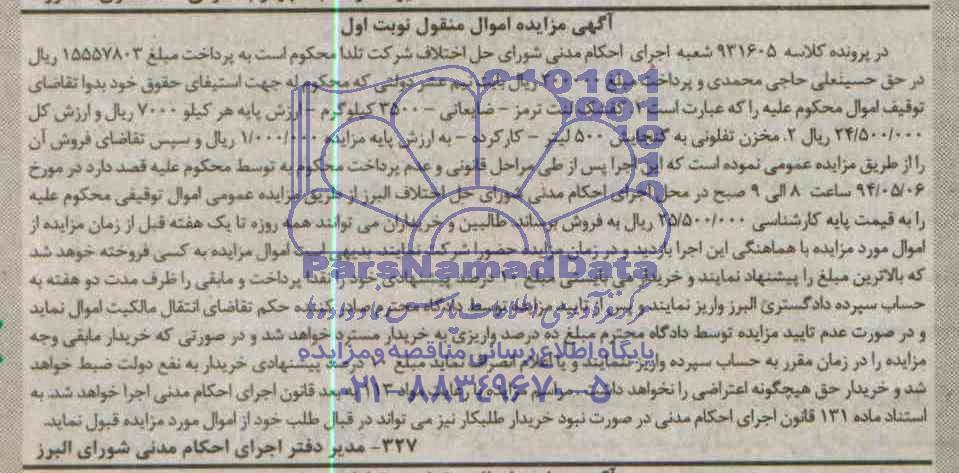 آگهی مزایده اموال منقول نوبت اول
در پرونده کلاسه ۹۳۱۶۰۵ شعبه اجرای احکام مدنی شورای حل اختلاف شرکت تلدا محکوم است به پرداخت مبلغ ۱۵۵۵۷۸۰۳ ریال
در حق حسینعلی حاجی محمدی و پرداخت مبلغ ریال بابت نیم عشر دولتی که محکوم له جهت استیفای حقوق خود بدوا تقاضای
توقیف اموال محکوم علیه را که عبارت است ۱. کفشک لنت ترمز - ضایعاتی - ۳۵۰۰ کیلوگرم - ارزش پایه هر کیلو ۷۰۰۰ ریال و ارزش کل
۲۴/۵۰۰/۰۰۰ ریال ۲. مخزن تفلونی به گنجایش ۵۰۰ لیتر - کارکرده - به ارزش پایه مزایده ۱/۰۰۰/۰۰۰ ریال و سپس تقاضای فروش آن
را از طریق مزایده عمومی نموده است که این اجرا پس از طی مراحل قانونی و عدم پرداخت محکوم به توسط محکوم علیه قصد دارد در مورخ
۹۴/۰۵/۰۶ ساعت ۸ الی ۹ صبح در محل اجرای احکام مدنی شورای حل اختلاف البرز از طریق مزایده عمومی اموال توقیفی محکوم علیه
را به قیمت پایه کارشناسی ۲۵/۵۰۰/۰۰۰ ریال به فروش برساند. طالبین و خریداران می توانند همه روزه تا یک هفته قبل از زمان مزایده از
اموال مورد مزایده با هماهنگی این اجرا بازدید و در زمان مزایده حضور شرکت نمایند بدیهی است اموال مزایده به کسی فروخته خواهد شد
که بالاترین مبلغ را پیشنهاد نمایند و خریدار می بایستی مبلغ ۱۰ درصد پیشنهادی خود را نقدا پرداخت و مابقی را ظرف مدت دو هفته به
حساب سپرده دادگستری البرز واریز نمایند و پس از تایید مزایده توسط دادگاه محترم صادر کننده حکم تقاضای انتقال مالکیت اموال نماید
و در صورت عدم تایید مزایده توسط دادگاه محترم مبلغ ده درصد واریزی به خریدار مسترد خواهد شد و در صورتی که خریدار مابقی وجه
مزایده را در زمان مقرر به حساب سپرده واریز ننمایند و یا اعلام انصراف نماید مبلغ ۱۰ درصد پیشنهادی خریدار به نفع دولت ضبط خواهد
شد و خریدار حق هیچگونه اعتراضی را نخواهد داشت مراسم مزایده با رعایت مواد به بعد قانون اجرای احکام مدنی اجرا خواهد شد. به
استناد ماده ۱۳۱ قانون اجرای احکام مدنی در صورت نبود خریدار طلبکار نیز می تواند در قبال طلب خود از اموال مورد مزایده قبول نماید.
۳۲۷- مدیر دفتر اجرای احکام مدنی شورای البرز
ParsNamadData
پایگاه اطلاع رسانی مناقصه و مزایده
۰۲۱-۸۸۳۴۹۶۷۰-۵